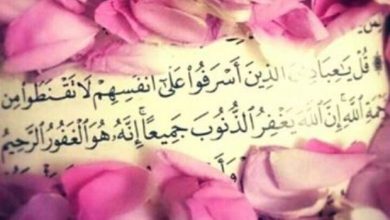 قُلْ يَٰعِبَادِىَ ٱلَّذِينَ أَسْرَفُوا۟ عَلَىٰٓ أَنفُسِهِمْ لَا تَقْنَطُوا۟ مِن
رَّحْمَةِ ٱللَّهِ ۚ إِنَّ ٱللَّهَ يَغْفِرُ ٱلذُّنُوبَ جَمِيعًا ۚ إِنَّهُۥ هُوَ ٱلْغَفُورُ ٱلرَّحِيمُ